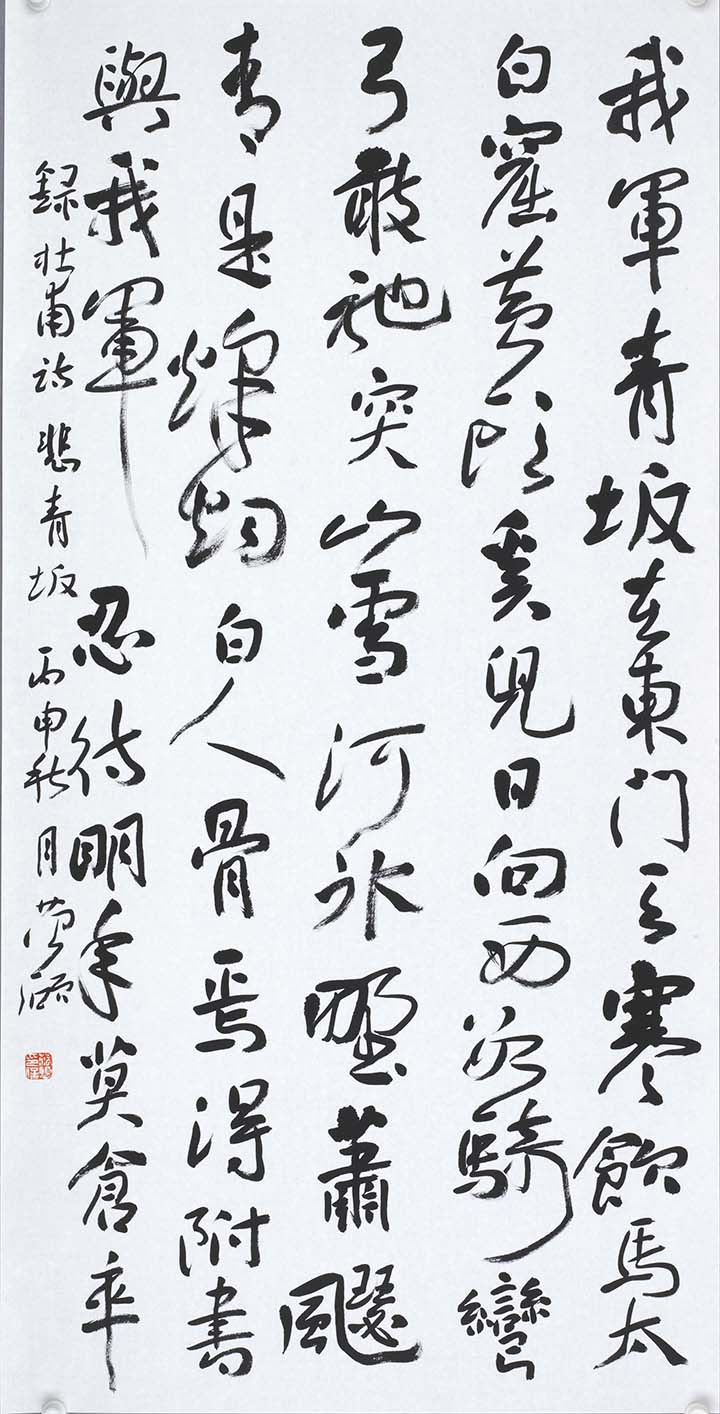 我軍青坂在東門天寒飲馬太
白窟黄頭奚兒日向西數騎彎
弓敢馳突山雪河冰野蕭飋
青是烽烟白人骨焉得附書
與我軍忍待明年莫倉卒
録杜甫詩悲青坂丙申秋月